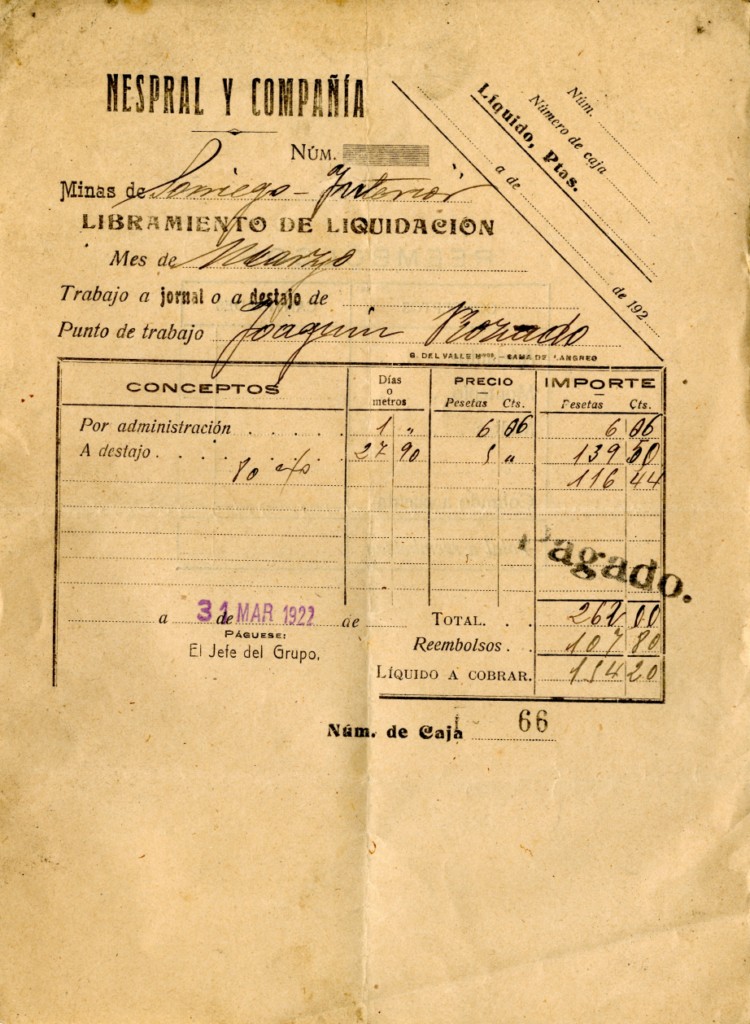 NESPRAL Y COMPAÑÍA
NÚM.
Minas de Sariego - Interior
LIBRAMIENTO DE LIQUIDACIÓN
Mes de Marzo
Trabajo a jornal o a destajo de
Punto de trabajo Joaquin Rozado
G. DEL VALLE Hnos. - SAMA DE LANGREO
Núm.
Número de caja
Líquido, Ptas.
a de de 192
CONCEPTOS Días o metros PRECIO IMPORTE
Pesetas Cts. Pesetas Cts.
Por administración 1 " 6 06 6 06
A destajo 27 90 5 " 139 50
80 % 116 44
Pagado.
a 31 de MAR 1922 de TOTAL. 262 00
PÁGUESE: Reembolsos 107 80
El Jefe del Grupo, LÍQUIDO A COBRAR. 154 20
Núm. de Caja 66